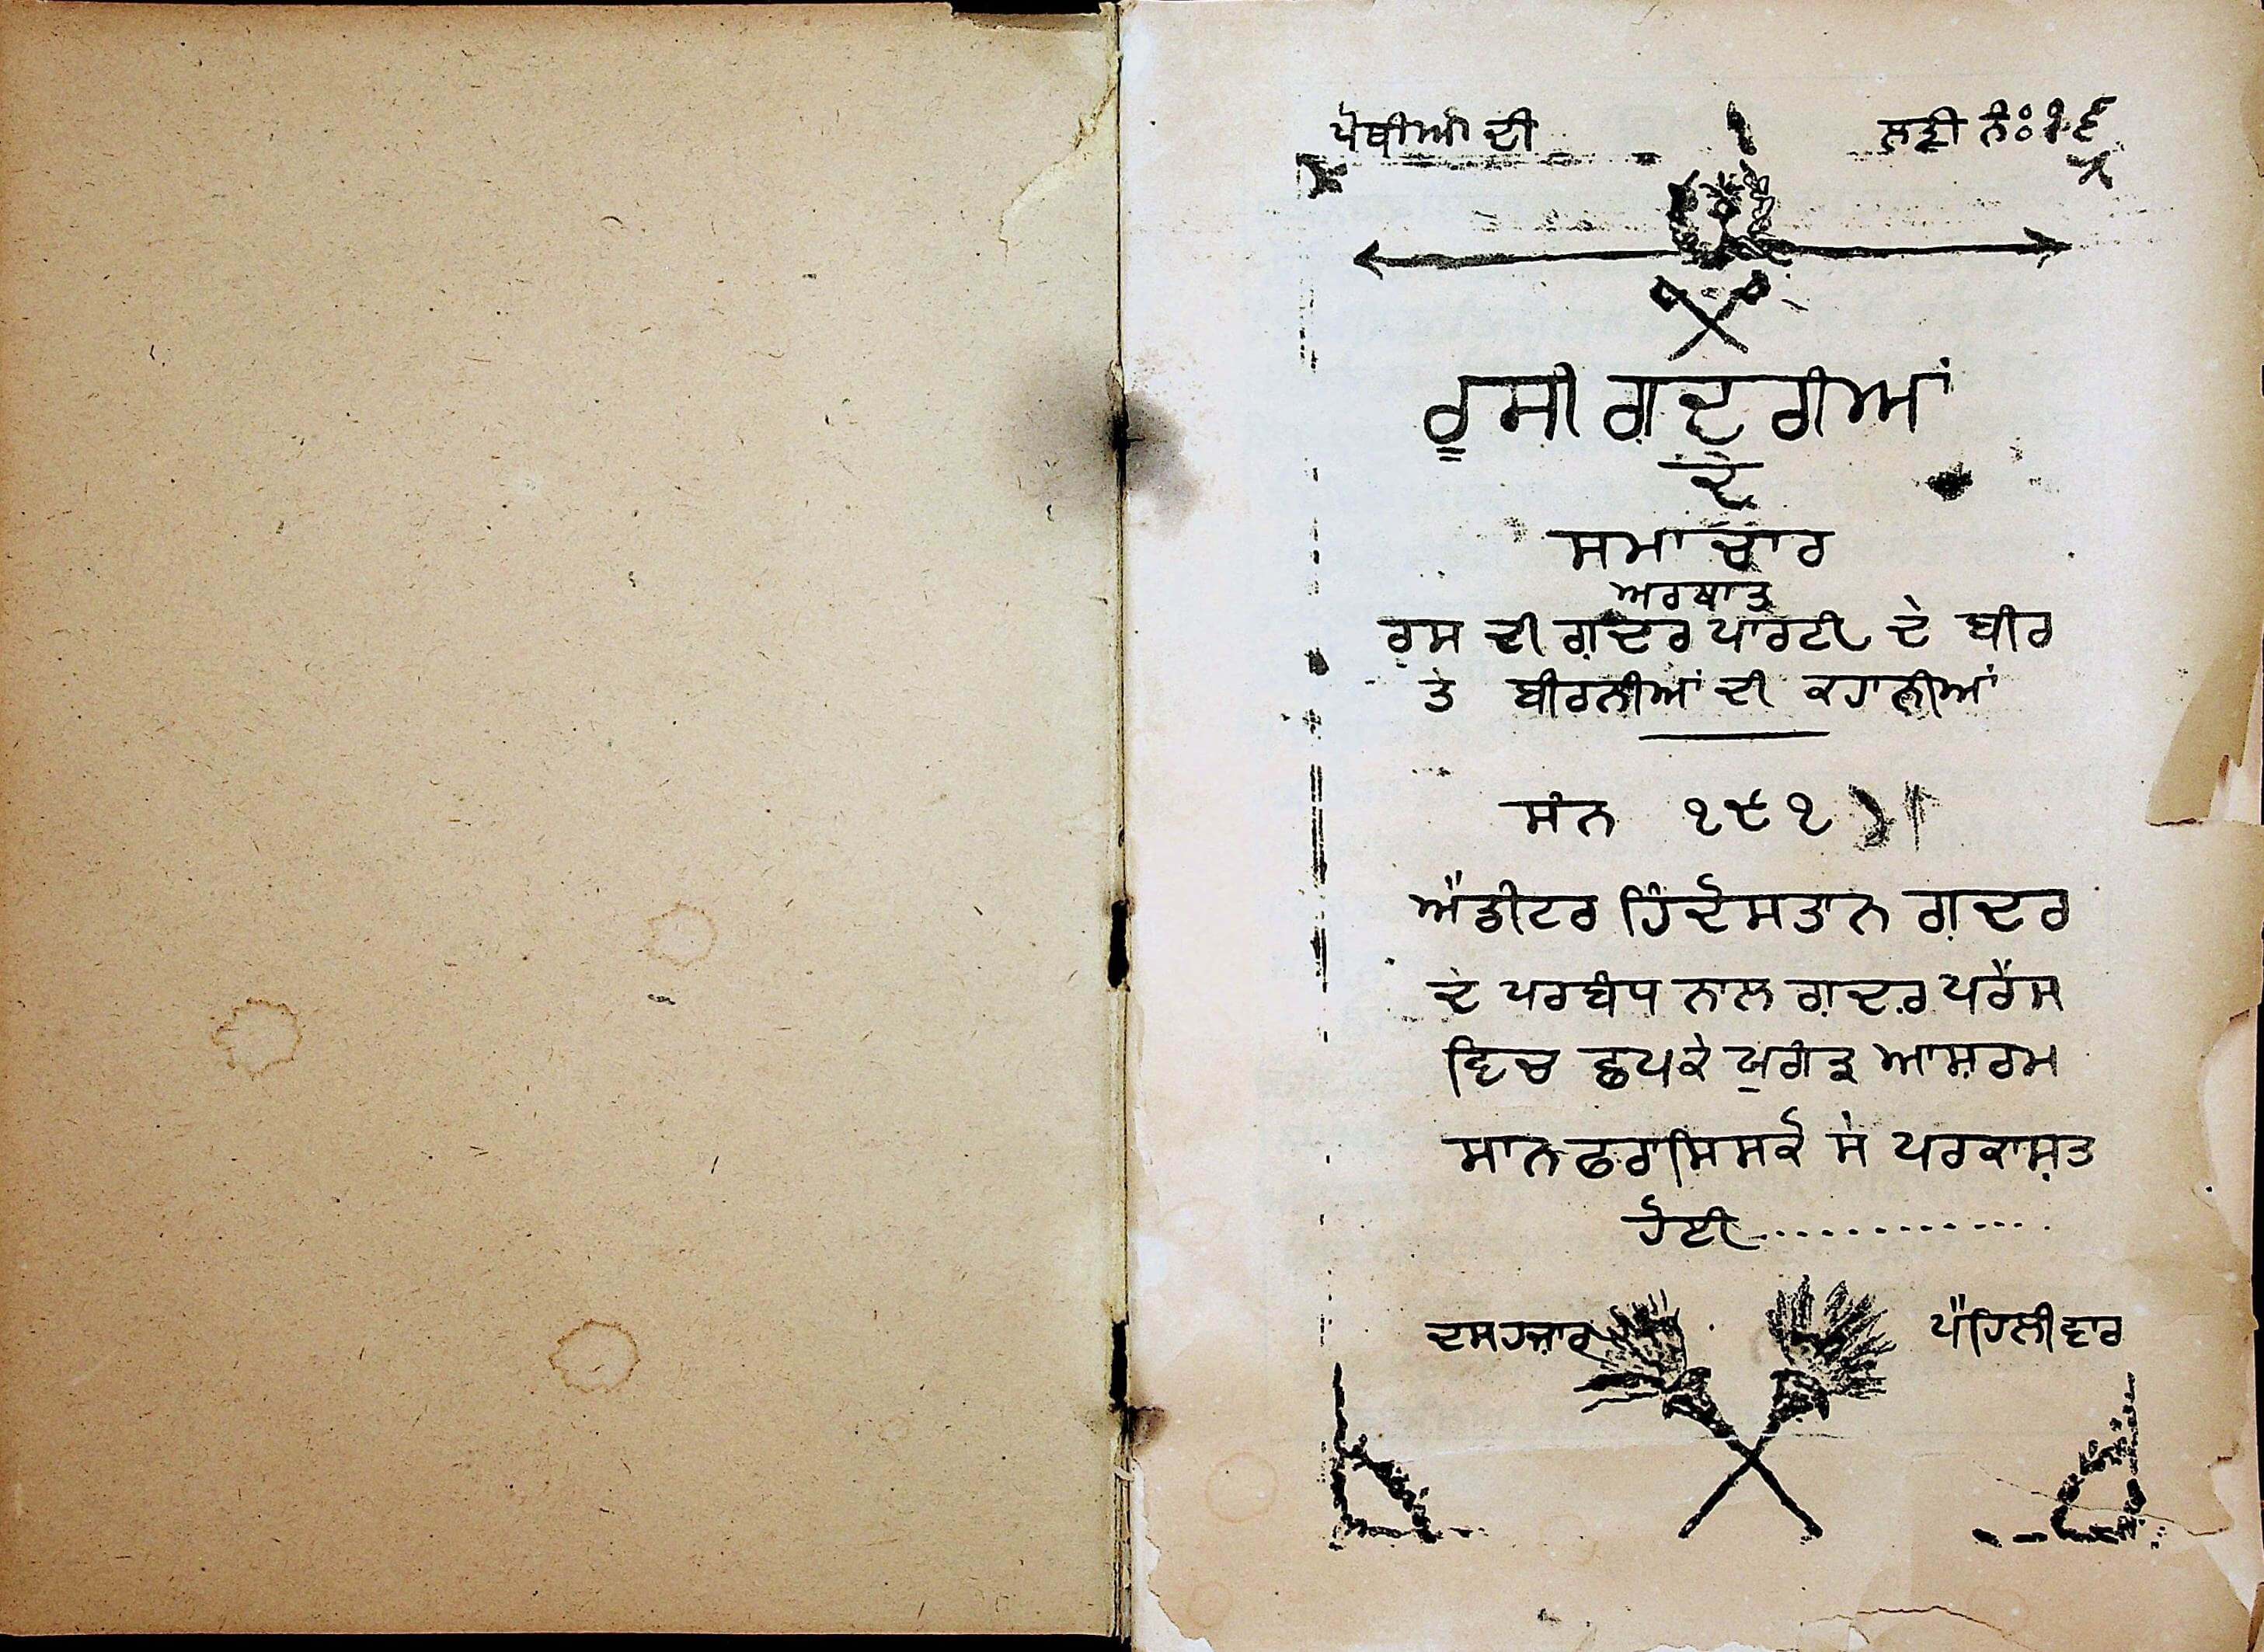 ਪੋਥੀਆਂ ਦੀ ਲੜੀ ਨੰ: ੧੬
ਰੂਸੀ ਗ਼ਦਰੀਆਂ
ਦੇ
ਸਮਾਚਾਰ
ਅਰਥਾਤ
ਰੂਸ ਦੀ ਗ਼ਦਰ ਪਾਰਟੀ ਦੇ ਬੀਰ
ਤੇ ਬੀਰਨੀਆਂ ਦੀ ਕਹਾਣੀਆਂ
ਸੰਨ ੧੯੧
ਐਡੀਟਰ ਹਿੰਦੋਸਤਾਨ ਗ਼ਦਰ
ਦੇ ਪਰਬੰਧ ਨਾਲ ਗ਼ਦਰ ਪਰੈਸ
ਵਿਚ ਛਪਕੇ ਯੁਗੰਤ੍ਰ ਆਸ਼ਰਮ
ਸਾਨ ਫਰਾਂਸਿਸਕੋ ਸੇ ਪਰਕਾਸ਼ਤ
ਹੋਈ..............
ਦਸ ਹਜ਼ਾਰ ਪੈਹਿਲੀ ਵਾਰ